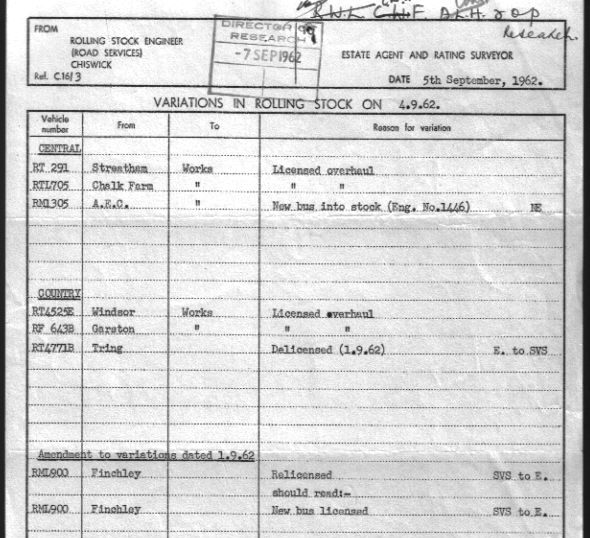 FROM
ROLLING STOCK ENGINEER
(ROAD SERVICES)
CHISWICK
Ref. C.16/3
DIRECTOR
RESEARCH
-7 SEP 1962
R.O.P
Research.
ESTATE AGENT AND RATING SURVEYOR
DATE 5th September, 1962.
VARIATIONS IN ROLLING STOCK ON 4.9.62.
Vehicle number From To Reason for variation
CENTRAL
RT 291 Streatham Works Licensed overhaul
RTL705 Chalk Farm " " "
RM1305 A.E.C. " New bus into stock (Eng. No.1446) NE
COUNTRY
RT4525E Windsor Works Licensed overhaul
RF 643B Garston " " "
RT4771B Tring Delicensed (1.9.62) E. to SVS
Amendment to variations dated 1.9.62
RML900 Finchley Relicensed SVS to E.
should read:-
RML900 Finchley New bus licensed SVS to E.